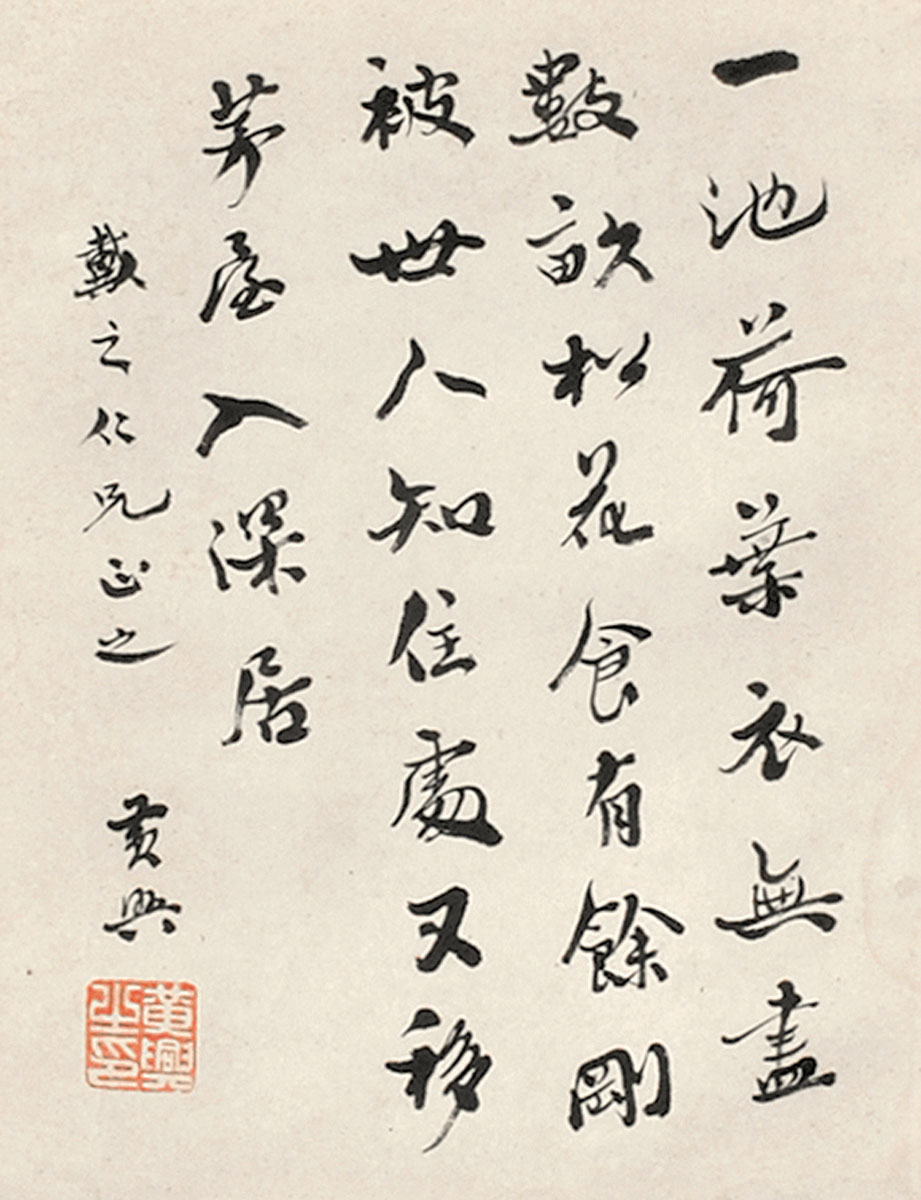 一池荷葉衣無盡
數畝松花食有餘剛
被世人知住處又移
茅屋入深居
戴之仁兄正之
黃興
黃興之印